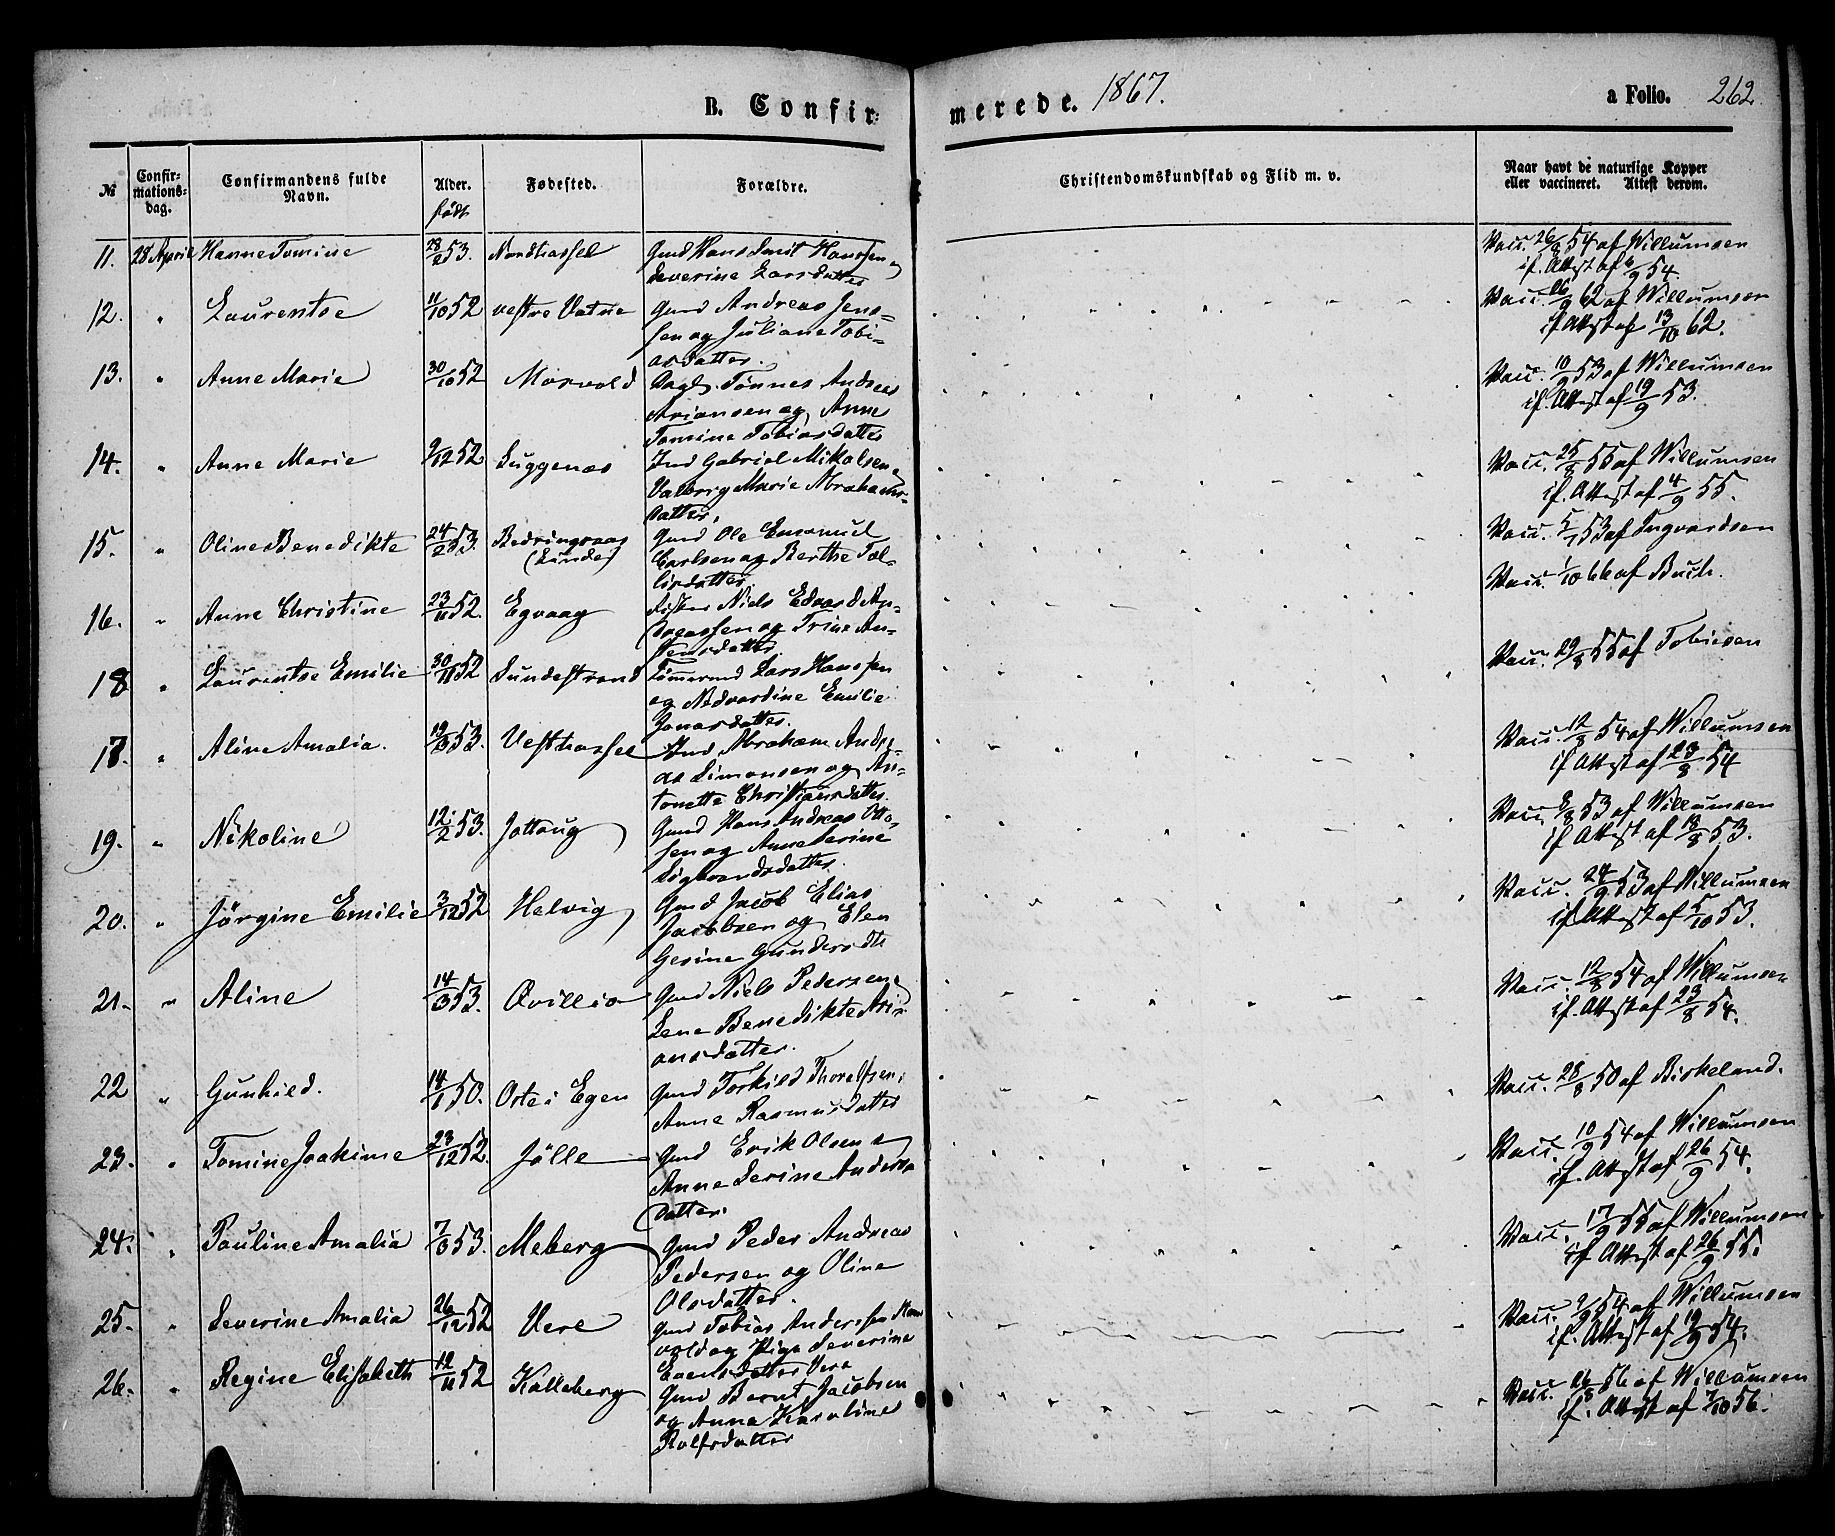 B. Confir-
merede. 1867.
a Folio. 262.
№
Confir-
mations-
dag.
Confirmandens fulde
Navn.
Alder.
født
Fødested.
Forældre.
Christendomskundskab og Flid m. v.
Naar havt de naturlige Kopper
eller vaccineret. Attest derom.
11. 28 April Hanne Tomine 28/2 53. Nordhassel Gmd Hans Smit Hanssen og
Severine Larsdatter
Vacc. 26/8 54 af Willumsen
if. Attest af 6/9 54.
12. " Laurentse 11/10 52 vestre Vatne Gmd Andreas Jens-
sen og Juliane Tobi-
asdatter.
Vacc. 26/9 62 af Willumsen
if Attest af 13/10 62.
13. " Anne Marie 30/10 52 Mosvold Dagl. Tønnes Andreas
Ariansen og Anne
Tomine Tobiasdatter
Vacc. 10/9 53 af Willumsen
if. Attest af 19/9 53.
14. " Anne Marie 9/12 52 Suggenæs Ind Gabriel Mikalsen og
Valborg Marie Abrahams-
datter.
Vacc. 25/8 55 af Willumsen
if. Attest af 4/9 55.
15. " Oline Benedikte 24/2 53. Bedringvaag
(Lunde)
Gmd Ole Emanuel
Carlsen og Berthe Tol-
lisdatter
Vacc. 5/7 53 af Ingvardsen
Vacc. 1/10 66 af Buch.
16. " Anne Christine 23/11 52. Egvaag Fisker Niels Edvard An-
dreassen og Trine An-
tensdatter
18 " Laurentse Emilie 30/11 52 Sundestrand Tømmermd Lars Hanssen
og Nedvardine Emilie
Jonasdatter.
Vacc. 29/8 55 af Tobiesen
17. " Aline Amalia. 19/3 53. Vesthassel Ind Abraham Andre-
as Simonsen og An-
tonette Christiansdatter.
Vacc. 12/8 54 af Willumsen
if Attest af 23/8 54
19. " Nikoline 12/2 53. Jottaug Gmd Hans Andreas Otto-
sen og Anne Serine
Sigbvardsdatter.
Vacc. 8/8 53 af Willumsen
if Attest af 18/8 53.
20. " Jørgine Emilie 3/12 52 Helvig Gmd Jacob Elias
Jacobsen og Elen
Gesine Gundersdtr
Vacc. 24/9 53 af Willumsen
if Attest af 5/10 53.
21. " Aline 14/3 53. Qvillio Gmd Niels Pedersen og
Lene Benedikte Ari-
ansdatter.
Vacc. 12/8 54 af Willumsen
if. Attest af 23/8 54.
22 " Gunhild. 14/1 50. Oste i Egen Gmd Torkild Thorelssen,
Anne Rasmusdatter
Vacc. 28/8 50 af Birkeland.
23. " Tomine Joakime 23/12 52. Jølle Gmd Erik Olsen og
Anne Serine Anders-
datter.
Vacc. 10/9 54 af Willumsen
if. Attest af 26/9 54.
24. " Pauline Amalia 7/3 53. Meberg Gmd Peder Andreas
Pedersen og Oline
Olsdatter.
Vacc. 17/9 55 af Willumsen
if Attest af 26/9 55.
25. " Severine Amalia 26/12 52 Vere Gmd Tobias Anderssen
og Pige Severine
Evensdatter Vere
Vacc. 9/9 54 af Willumsen
if. Attest af 19/9 54.
26. " Regine Elisabeth 12/11 52 Kalleberg Gmd Bernt Jacobsen
og Anna Karoline
Rolfsdatter
Vacc. 26/8 56 af Willumsen
if. Attest af 7/10 56.